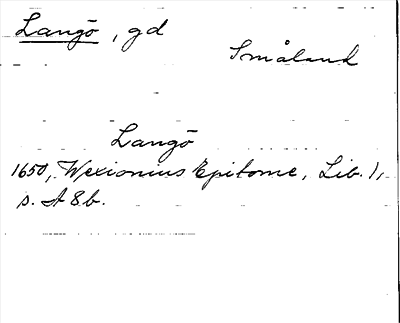 Langö, gd
Småland
Langö
1650, Wexionius Epitome, Lib. 1,
s. A 8 b.